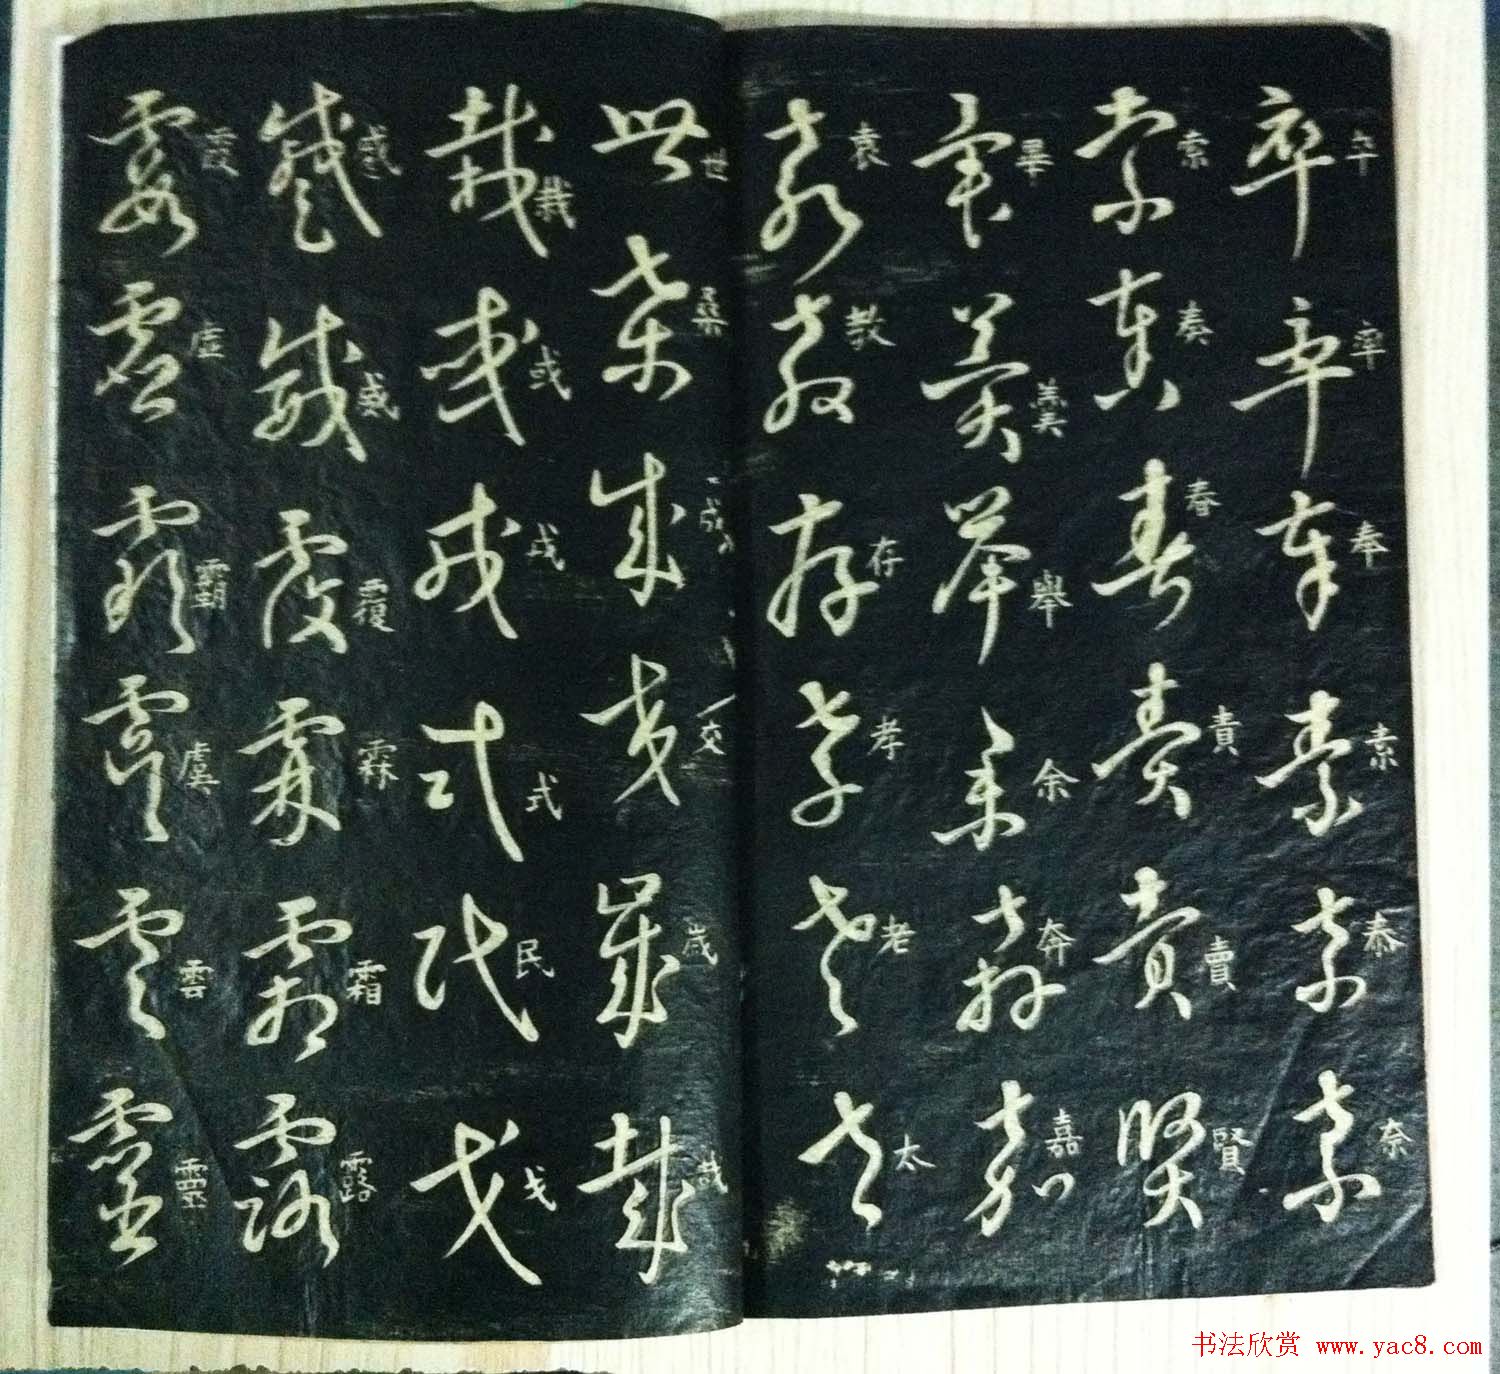 卒率奉素泰奈
索奏春責賣賢
畢舉余奔嘉
袁教存孝老太
世桑成交歲哉
栽或戌式民戈
覆霖霜露
霞虛霸虞雲靈
书法欣赏 www.yac8.com